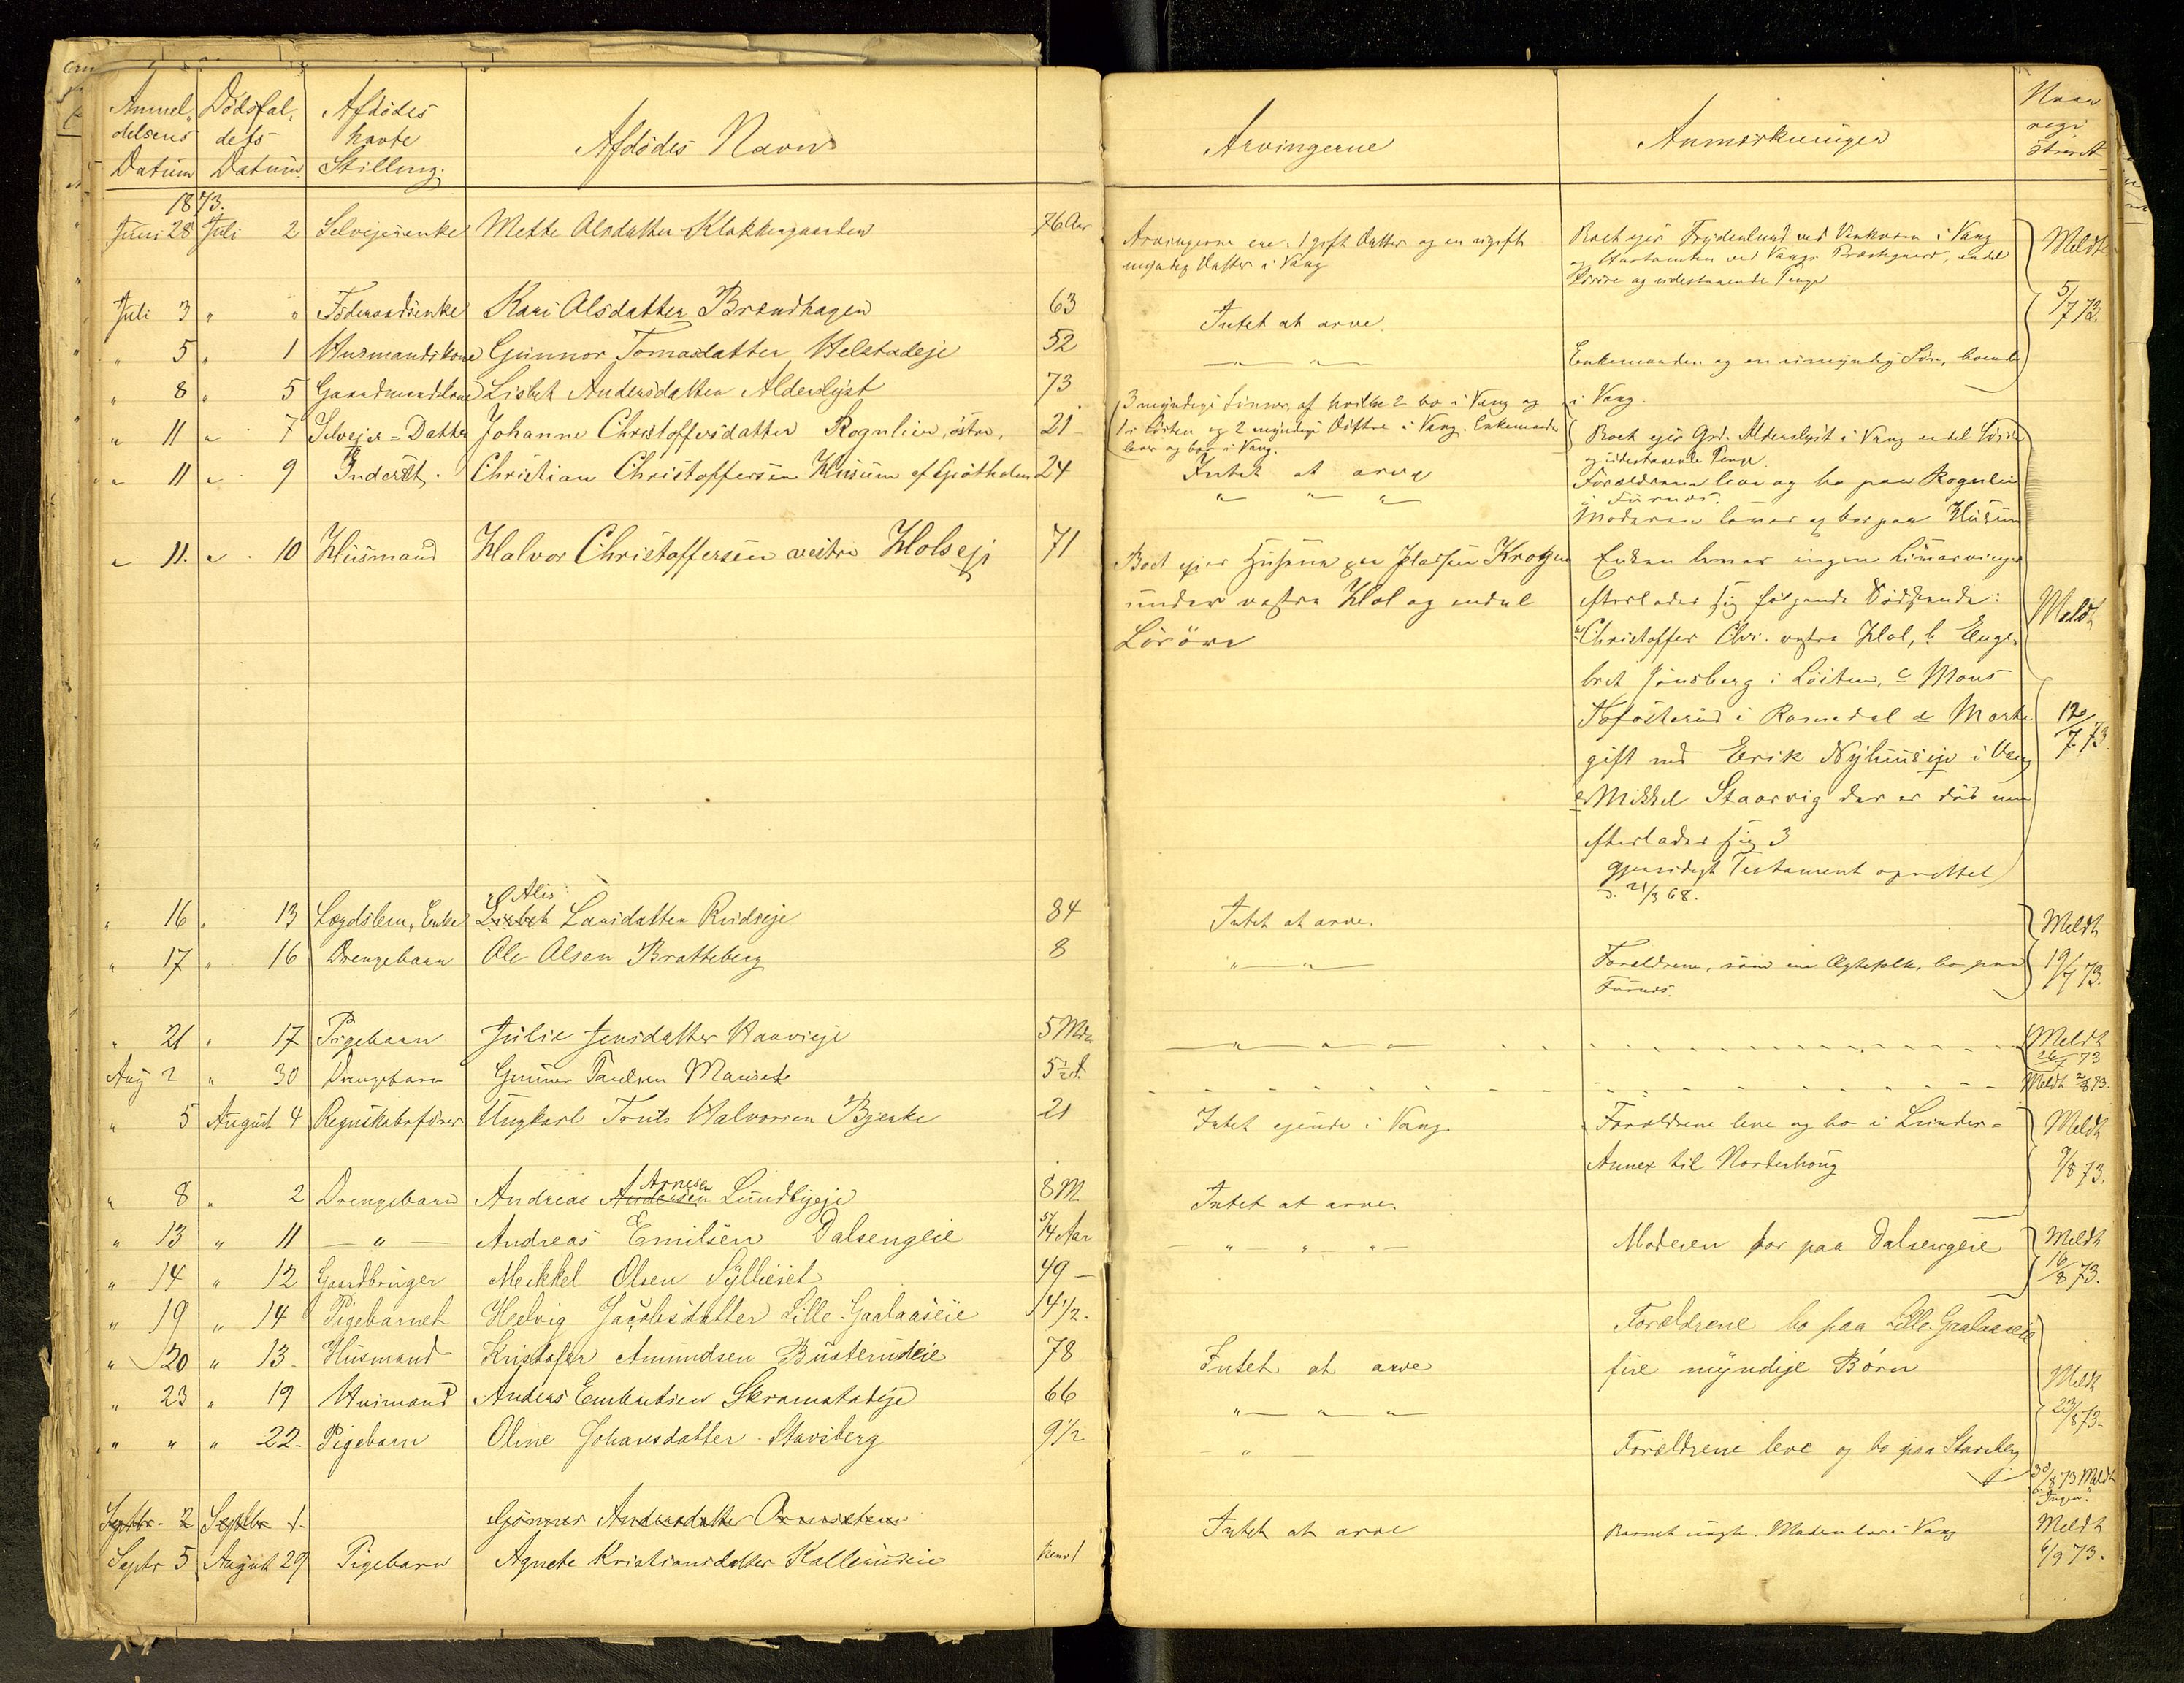 Anmel- Dødsfal- Afdødes
delsens dets havte Afdødes Navn
Datum Datum Stilling.
1873.
Juni 28 Juli 2 Selvejerenke Mette Olsdatter Klokkergaarden 76 Aar
Juli 3 " " Føderaadsenke Kari Olsdatter Brændhagen 63
" 5 " 1 Husmandskone Gunnor Tomasdatter Helstadeje 52
" 8 " 5 Gaardmandskone Lisbet Andersdatter Alderslyst 73
" 11 " 7 Selvejer-Datter Johanne Christoffersdatter Rognlien, østre, 21
" 11 " 9 Inderst. Christian Christoffersen Husum 24
" 11. " 10 Husmand Halvor Christoffersen vestre Holseje 71
Alis
" 16 " 13 Lægdslem, Enke Lisbet Larsdatter Rudseje 84
" 17 " 16 Drengebarn Ole Olsen Bratteberg 8
" 21 " 17 Pigebarn Julie Jensdatter 5 Mdr
Aug 2 " 30 Drengebarn Gunnar Paulsen
" 5 August 4 Regnskabsfører Ungkarl Truls Halvorsen Bjerke 21
Arnesen
" 8 " 2 Drengebarn Andreas Andersen Lundbyeje 8 M
" 13 " 11 — " — Andreas Emilsen Dalsengeie 5/4 Aar
" 14 " 12 Gaardbruger Meikkel Olsen 49 —
" 19 " 14 Pigebarnet Hedvig Jacobsdatter Lille-Gaalaaseie 14 1/2.
" 20 " 13. Husmand Kristofer Amundsen Busterudeie 78
" 23 " 19 Husmand Anders Embretsen Skramstadeje 66
" " " 22. Pigebarn Oline Johansdatter Stavsberg 9 1/2
Septbr. 2 Septbr 1. Gönner Andersdatter
Septr 5 August 29 Pigebarn Agnete Kristiansdatter
Arvingerne Anmærkninger Naar
regi
streret
Arvingerne ere: 1 gift Datter og en ugift
myndig Datter i Vang
Boet ejer Frydenlund ved i Vang
ved Vangs Præstegaard, endel
Løsøre og udestaaende Penge
Meldt
5/7 73.
Intet at arve.
— " — " —
Enkemanden og en umyndig Søn, boende
i Vang.
3 myndige Sønner, af hvilke 2 bo i Vang og
1 i Løiten og 2 myndige Døttre i Vang. Enkemanden
lever og bor i Vang.
Boet ejer Grd. Alderslyst i Vang endel Løsøre
og udestaaende Penge.
Intet at arve
" — " — "
Forældrene leve og bo paa Rognlien
i Furnæs.
Moderen lever og bor paa Husum
Boet ejer Husene paa Pladsen
under vestre Hol og endel
Løsøre
Enken lever ingen Livsarvinger
efterlader sig følgende Sødskende:
a Christoffer Chr. vestre Hol, b Enge-
bret Jønsberg i Löiten, c Mons
i Romedal d Marte
gift med Erik Nyhuseje i Vang
e Mikkel Staarvig der er død men
efterlader sig 3
gjensidigt Testament oprettet
d. 21/3 68.
Meldt
12/7 73.
Intet at arve.
" — " —
Forældrene, som ere Ægtefolk, bo paa
Furnæs.
Meldt
19/7 73.
— " — " — " —
Meldt
26/7 73
Meldt 2/8 73.
Intet ejende i Vang.
Forældrene leve og bo i Lunder-
Annex til Norderhoug
Meldt
9/8 73.
Intet at arve.
— " — " — " —
Moderen bor paa Dalsengeie
Meldt
16/8 73.
Forældrene bo paa Lille-Gaalaaseie
Intet at arve fire myndige Børn
" — " — "
Meldt
23/8 73.
- " Forældrene leve og bo paa Stavsberg
30/8 73 Meldt
"Ingen".
Intet at arve Barnet uægte. Moderen bor i Vang
Meldt
6/9 73.